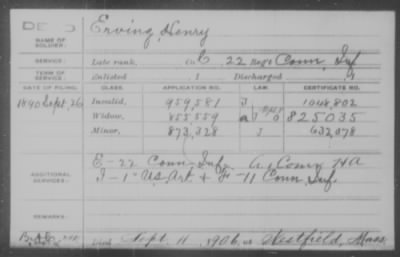 DE
Erving, Henry
NAME OF SOLDIER:
SERVICE: Late rank, Co. C, 22 Reg't Conn. Inf.
TERM OF SERVICE: Enlisted , 1 Discharged , 1
DATE OF FILING. CLASS. APPLICATION NO. LAW. CERTIFICATE NO.
1890 Sept. 26 Invalid, 959,581 J 1048,802
Widow, 855,559 825035
Minor, 873,328 632,078
ADDITIONAL SERVICES:
E-22 Conn. Inf. A, Conn. HA
I-1" US Art & F-11 Conn. Inf.
REMARKS:
Died Sept. 11, 1906, at Westfield, Mass.